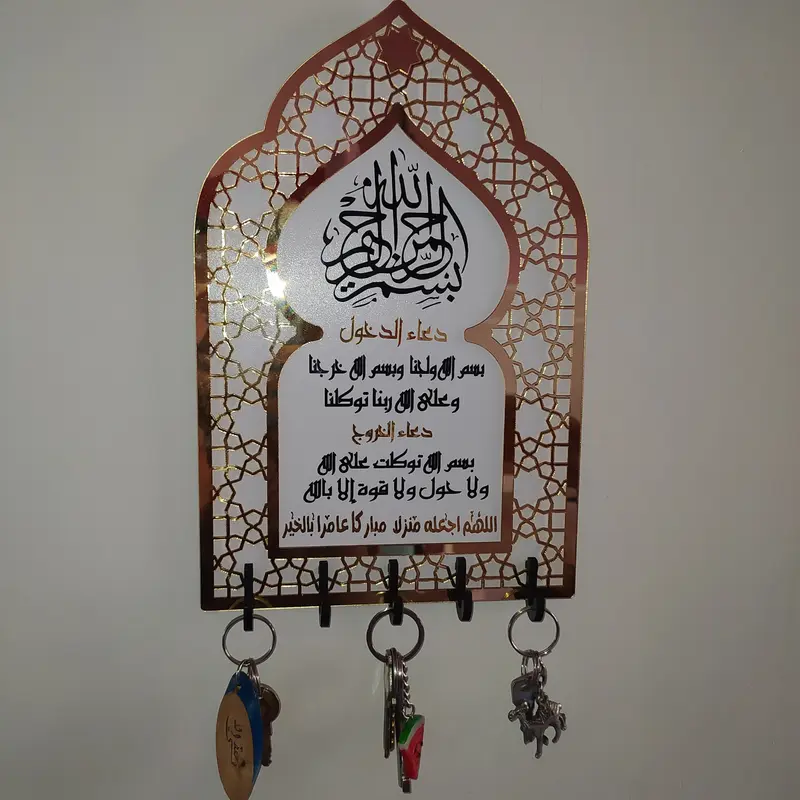 بسم الله الرحمن الرحيم
دعاء الدخول
بسم الله ولجنا وبسم الله خرجنا
وعلى الله ربنا توكلنا
دعاء الخروج
بسم الله توكلت على الله
ولا حول ولا قوة إلا بالله
اللهم اجعله منزلا مباركا عامرا بالخير